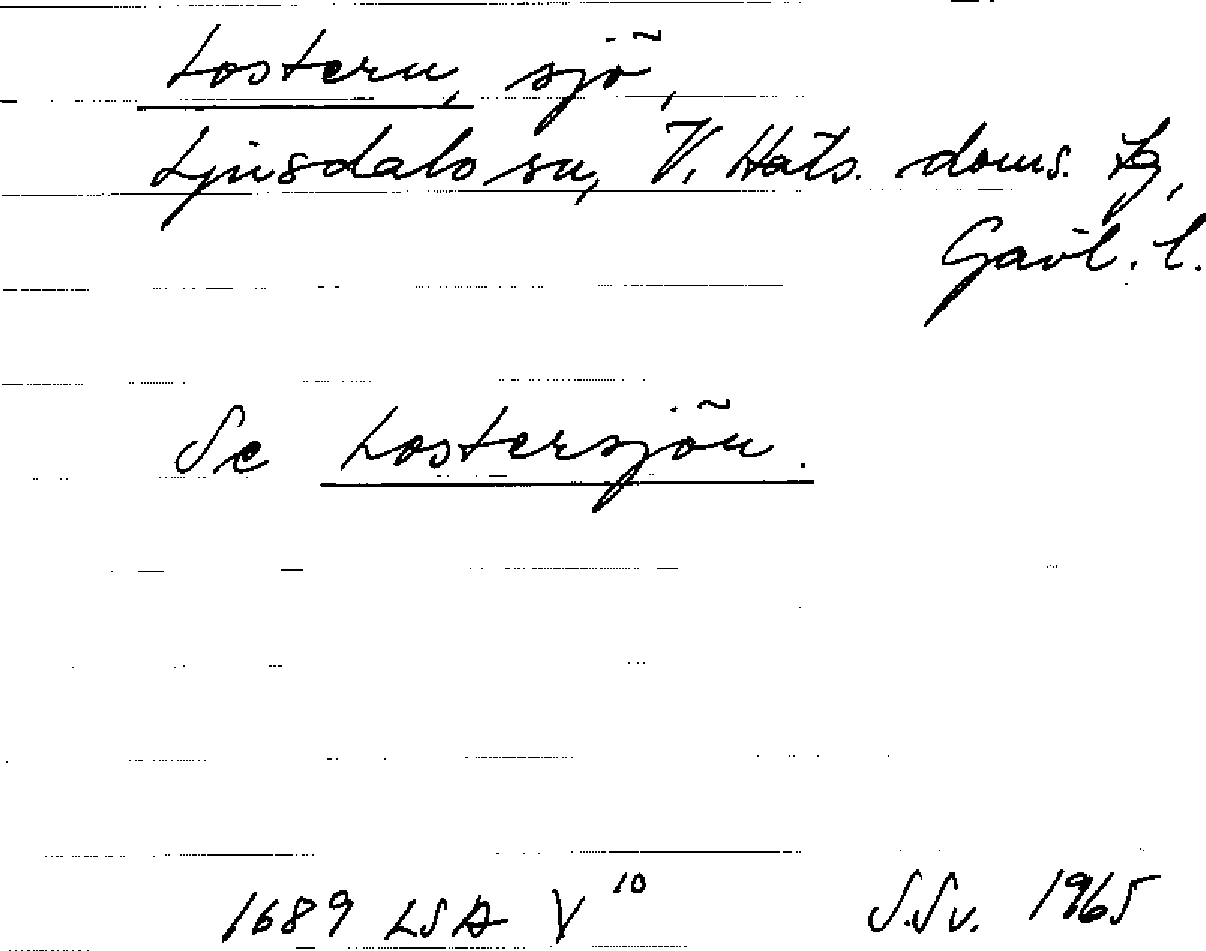 Lostern, sjö,
Ljusdals sn, V. Häls. doms. tg,
Gävl. l.
Se Lostersjön.
1689 LSA V 10 S.Sv. 1965